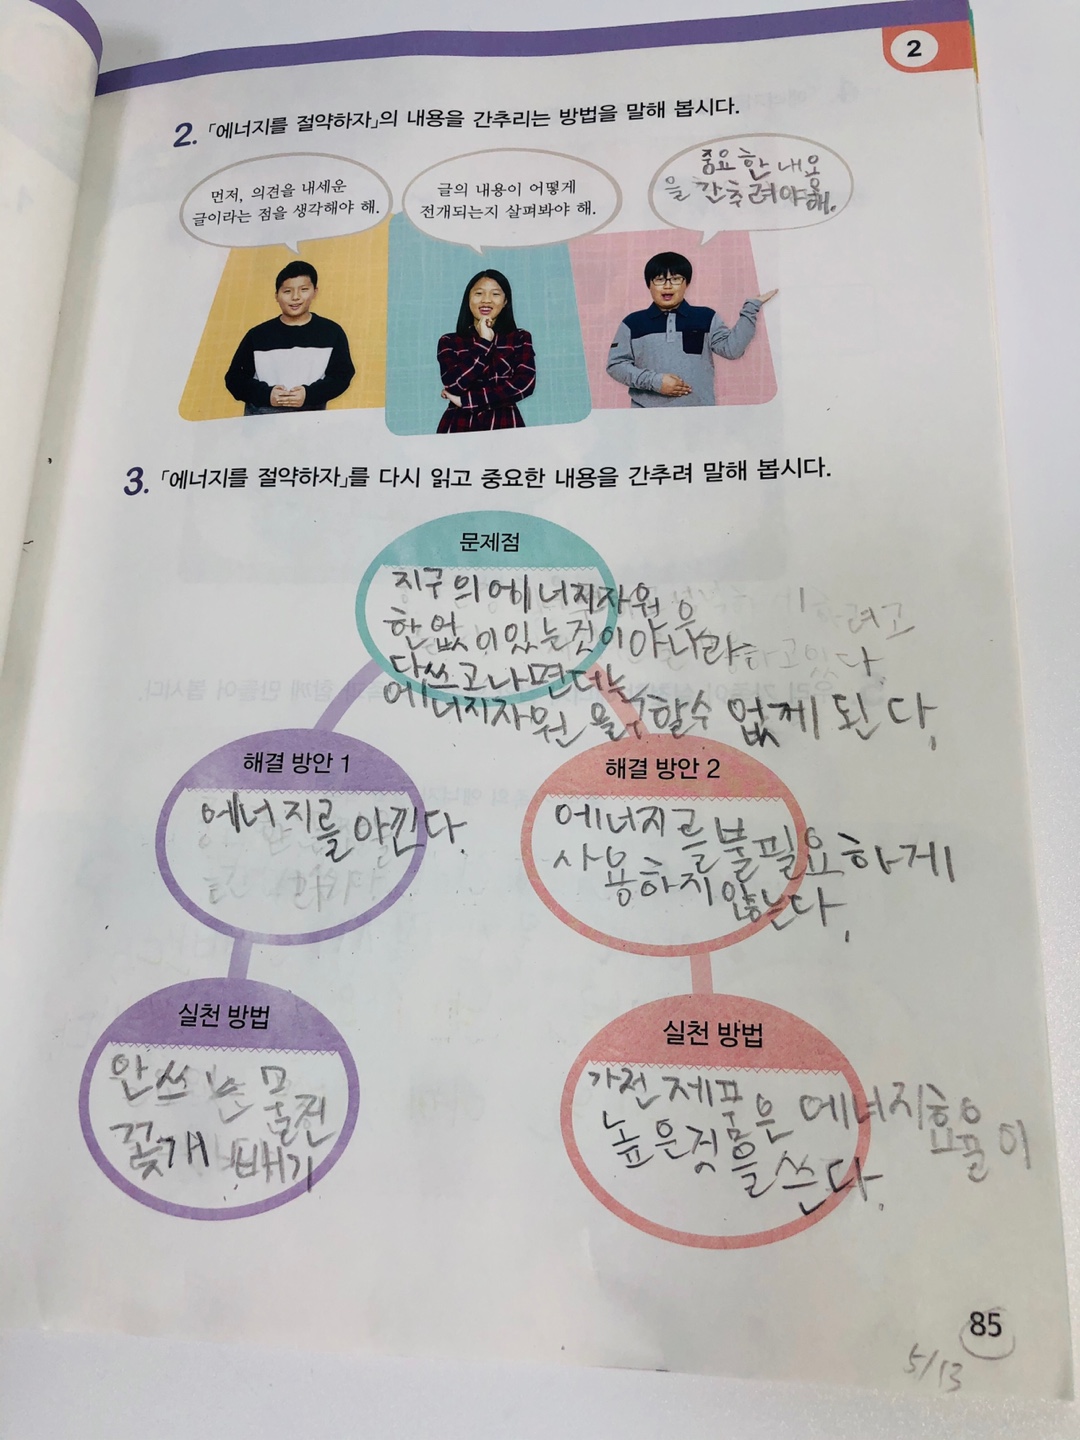 2
2. 「에너지를 절약하자」의 내용을 간추리는 방법을 말해 봅시다.
먼저, 의견을 내세운
글이라는 점을 생각해야 해.
글의 내용이 어떻게
전개되는지 살펴봐야 해.
중요한 내용
을 간추려야해.
3. 「에너지를 절약하자」를 다시 읽고 중요한 내용을 간추려 말해 봅시다.
문제점
지구의 에너지자원은
한없이 있는것이 아니라
다쓰고나면 더는
에너지자원을 할수 없게 된다.
해결 방안 1
에너지를 아낀다.
해결 방안 2
에너지를 불필요하게
사용하지 않는다.
실천 방법
안쓰는 물건
꽂개 빼기
실천 방법
가전 제품은 에너지효율이
높은것을 쓴다.
85
5/13